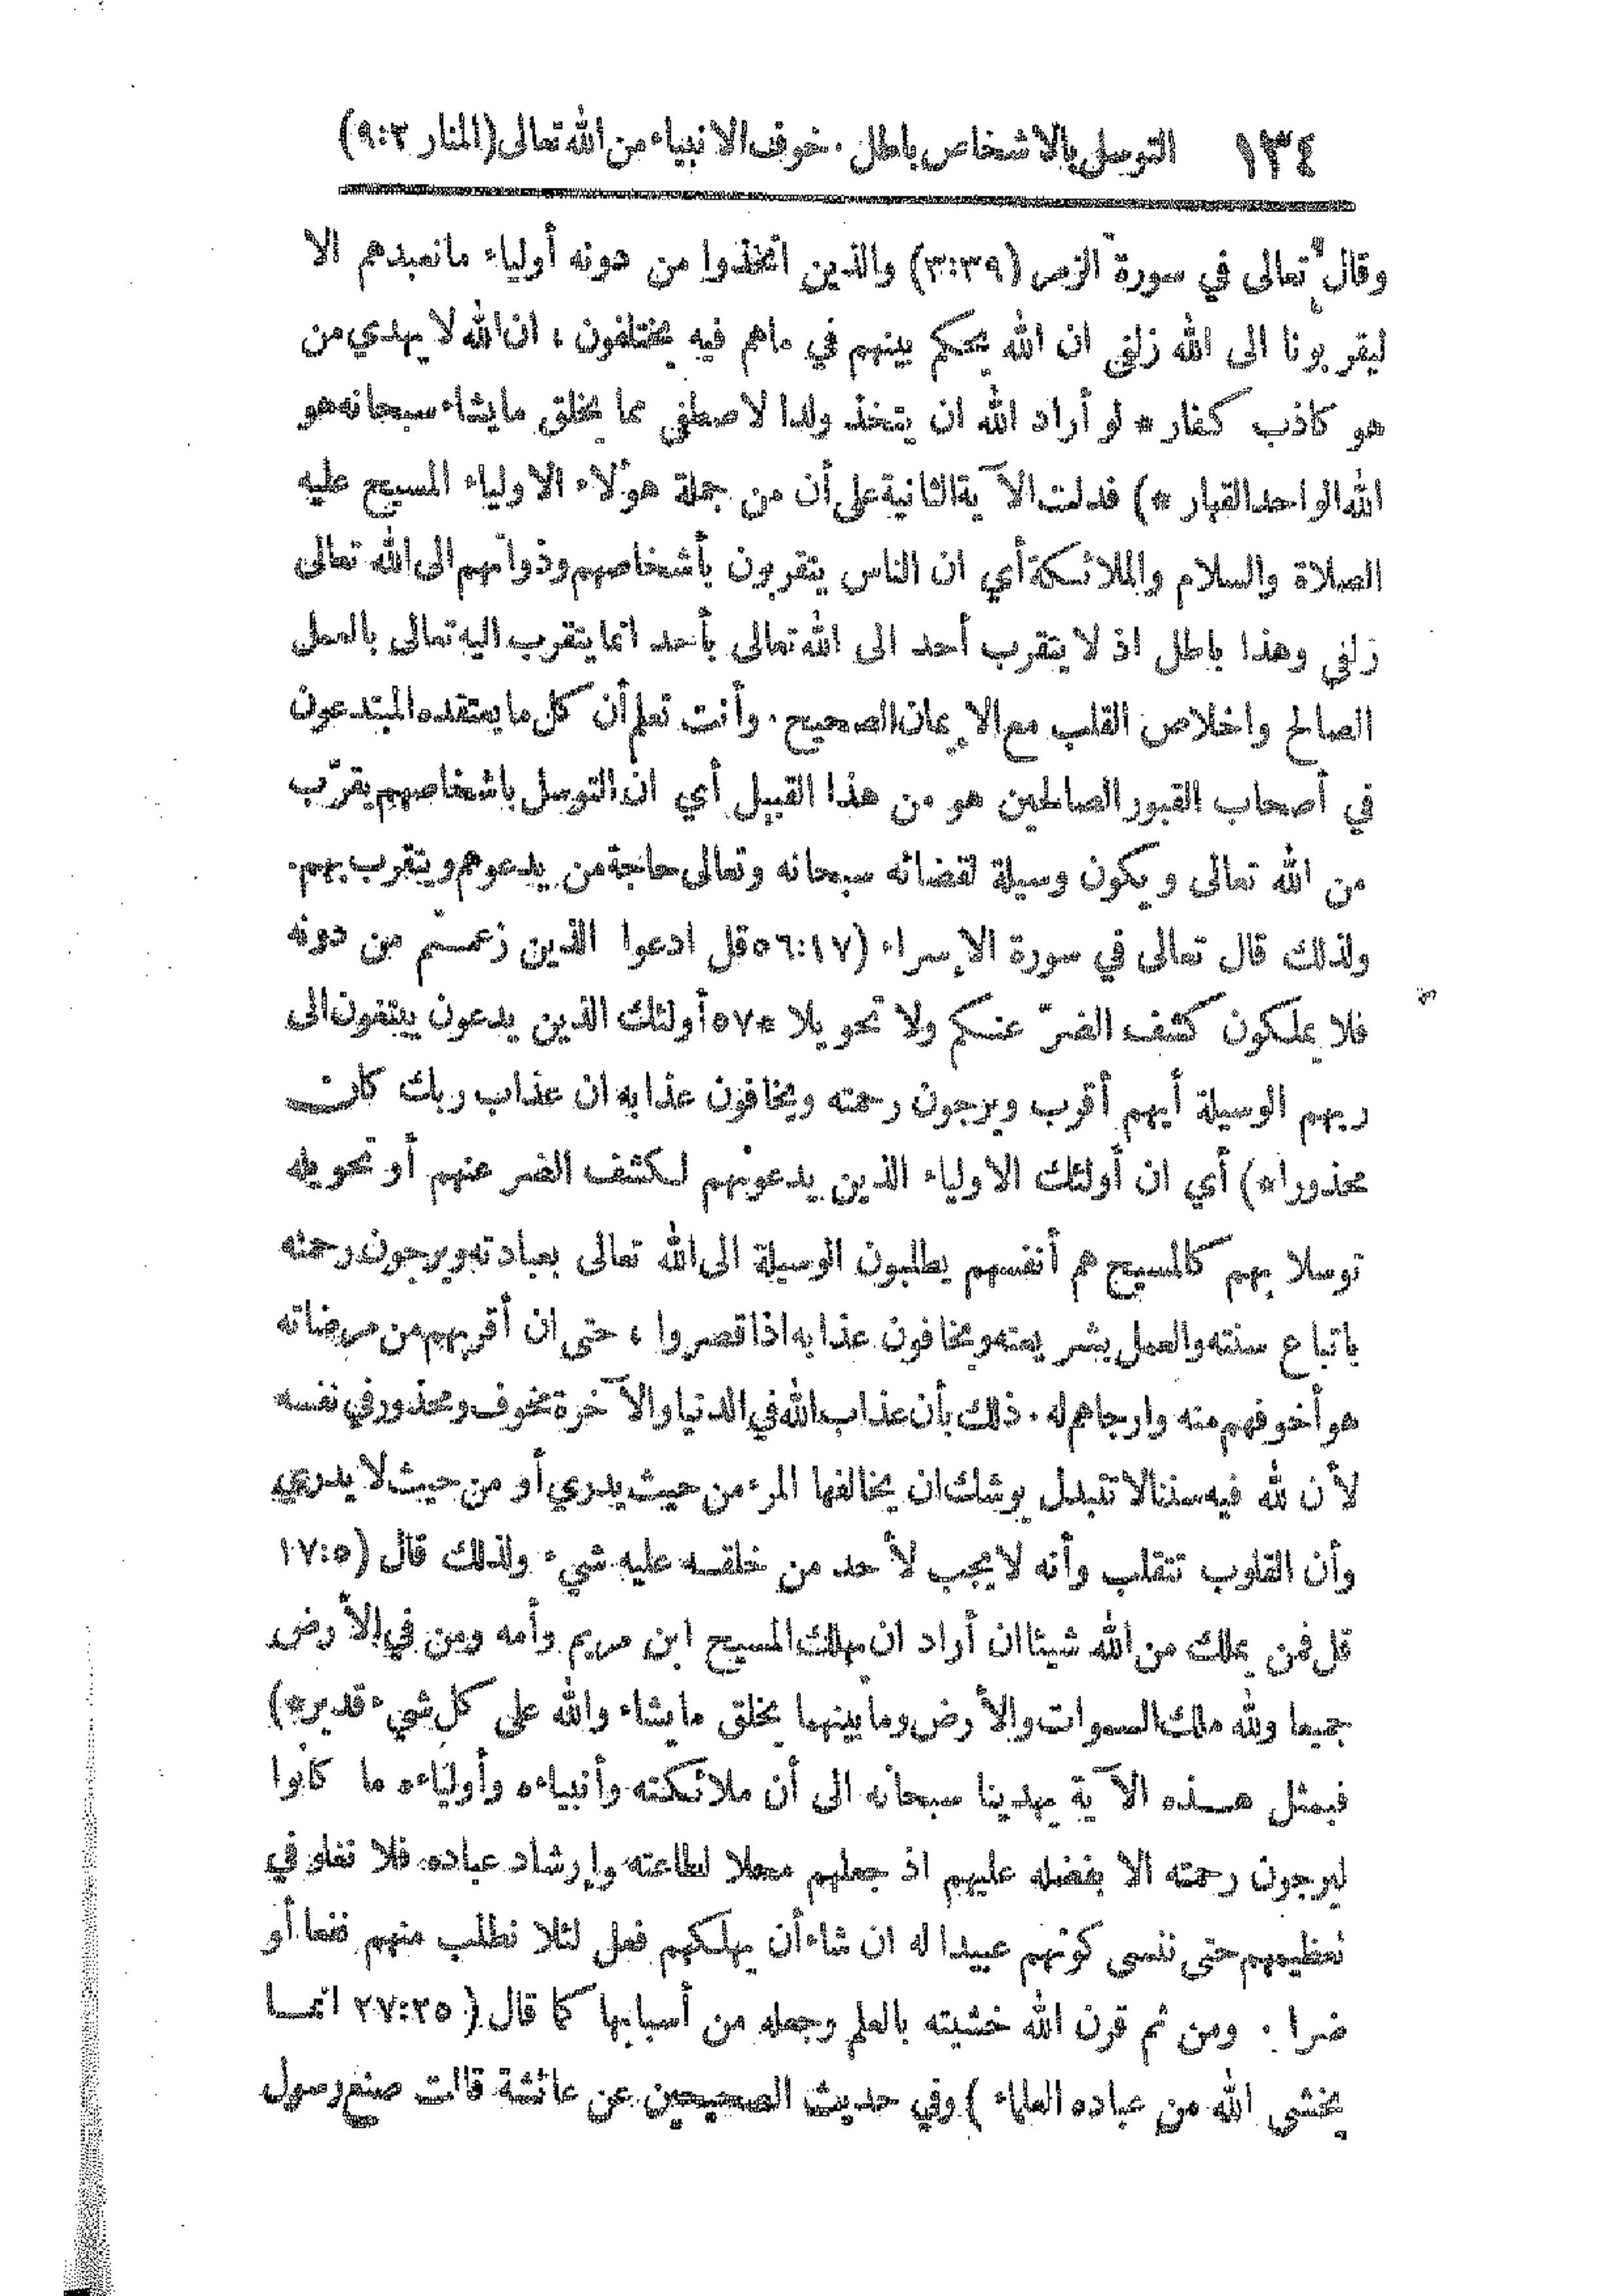 ١٣٤ التوسل بالاشخاص باطل . خوف الانبياء من الله تعالى (المنار ٣:٩)
وقال تعالى في سورة الزمر (٣:٣٩) والذين اتخذوا من دونه أولياء مانعبدهم الا
ليقربونا الى الله زلفى ان الله يحكم بينهم في ماهم فيه يختلفون ، ان الله لا يهدي من
هو كاذب كفار * لو أراد الله ان يتخذ ولدا لاصطفى مما يخلق مايشاء سبحانه هو
الله الواحد القهار *) فدلت الآية الثانية على أن من جملة هؤلاء الاولياء المسيح عليه
الصلاة والسلام والملائكة أي ان الناس يتقربون بأشخاصهم وذواتهم الى الله تعالى
زلفى وهذا باطل اذ لا يتقرب أحد الى الله تعالى بأحد انما يتقرب اليه تعالى بالعمل
الصالح واخلاص القلب مع الايمان الصحيح . وأنت تعلم أن كل ما يعتقده المبتدعون
في أصحاب القبور الصالحين هو من هذا القبيل أي ان التوسل باشخاصهم يقرّب
من الله تعالى ويكون وسيلة لقضائه سبحانه وتعالى حاجة من يدعوهم ويتقرب بهم .
ولذلك قال تعالى في سورة الإسراء (٥٦:١٧ قل ادعوا الذين زعمتم من دونه
فلا يملكون كشف الضرّ عنكم ولا تحويلا * ٥٧ أولئك الذين يدعون يبتغون الى
ربهم الوسيلة أيهم أقرب ويرجون رحمته ويخافون عذابه ان عذاب ربك كان
محذورا *) أي ان أولئك الاولياء الذين يدعونهم لكشف الضر عنهم أو تحويله
توسلا بهم كالمسيح هم أنفسهم يطلبون الوسيلة الى الله تعالى بعبادته ويرجون رحمته
باتباع سنته والعمل بشريعته ويخافون عذابه اذا قصروا ، حتى ان أقربهم من مرضاته
هو أخوفهم منه وارجاهم له . ذلك بأن عذاب الله في الدنيا والآخرة مخوف ومحذور في نفسه
لأن لله فيه سننا لا تتبدل يوشك ان يخالفها المرء من حيث يدري أو من حيث لا يدري
وأن القلوب تتقلب وأنه لا يجب لأحد من خلقه عليه شيء ولذلك قال (١٧:٥
قل فمن يملك من الله شيئا ان أراد ان يهلك المسيح ابن مريم وأمه ومن في الأرض
جميعا ولله ملك السموات والأرض وما بينهما يخلق ما يشاء والله على كل شيء قدير *)
فبمثل هذه الآية يهدينا سبحانه الى أن ملائكته وأنبياءه وأولياءه ما كانوا
ليرجون رحمته الا بفضله عليهم اذ جعلهم محلا لطاعته وإرشاد عباده فلا نغلو في
تعظيمهم حتى ننسى كونهم عبيدا له ان شاء أن يهلكهم فعل لئلا نطلب منهم نفعا أو
ضرا . ومن ثم قرن الله خشيته بالعلم وجعله من أسبابها كما قال (٢٧:٣٥ انما
يخشى الله من عباده العلماء ) وفي حديث الصحيحين عن عائشة قالت صنع رسول